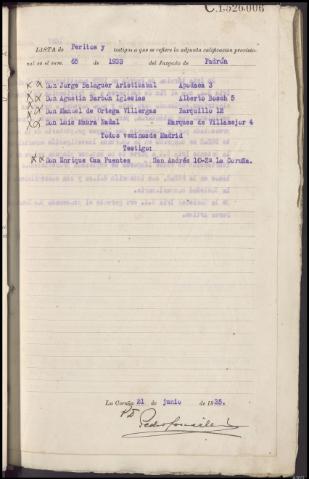 C.1.526.006
LISTA de Peritos y testigos a que se refiere la adjunta calificación provisio-
nal en el sum. 65 de 1933 del Juzgado de Padrón
Don Jorge Balaguer Aristizabal Apodaca 3
Don Agustin Barbón Iglesias Alberto Bosch 5
Don Manuel de Ortega Villergas Barquillo 12
Don Luis Maura Nadal Marques de Villamejor 4
Todos vecinos de Madrid
Testigo:
Don Enrique Can Fuentes San Andrés 10-2º la Coruña.
La Coruña 21 de junio de 1935.